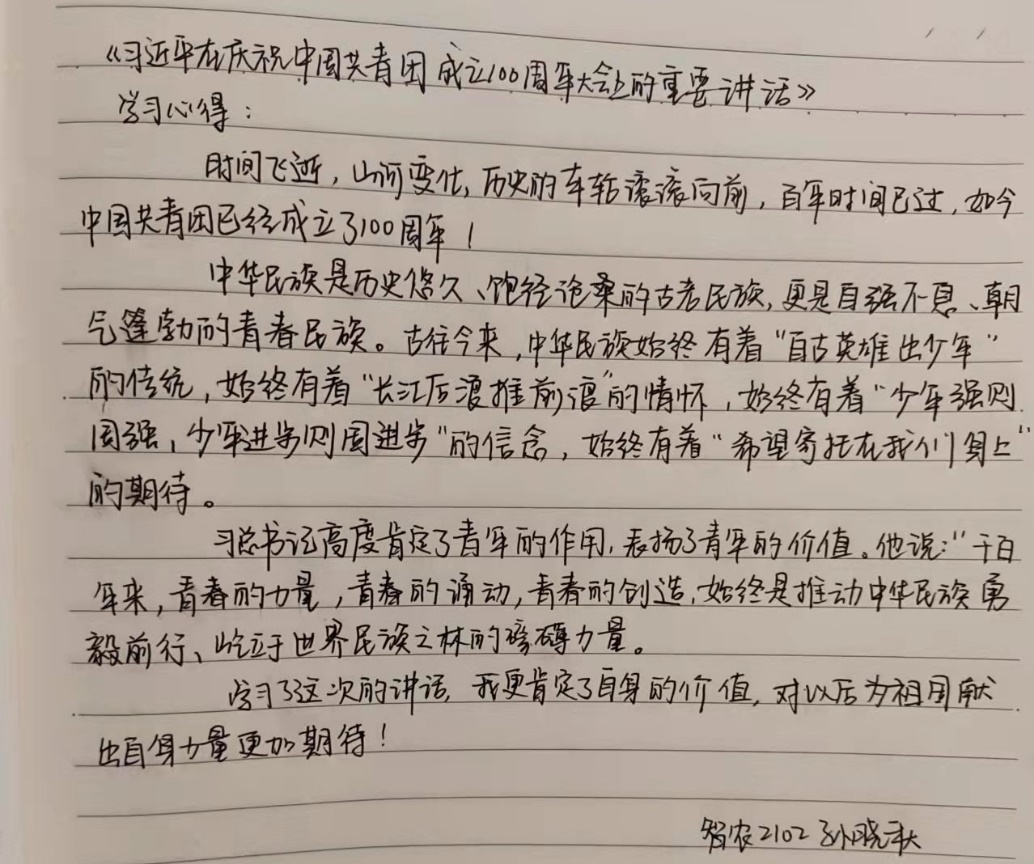 《习近平在庆祝中国共青团成立100周年大会上的重要讲话》
学习心得：
时间飞逝，山河变化，历史的车轮滚滚向前，百年时间已过，如今
中国共青团已经成立了100周年！
中华民族是历史悠久、饱经沧桑的古老民族，更是自强不息、朝
气蓬勃的青春民族。古往今来，中华民族始终有着“自古英雄出少年”
的传统，始终有着“长江后浪推前浪”的情怀，始终有着“少年强则
国强，少年进步则国进步”的信念，始终有着“希望寄托在我们身上”
的期待。
习总书记高度肯定了青年的作用，表扬了青年的价值。他说：“千百
年来，青春的力量，青春的涌动，青春的创造，始终是推动中华民族勇
毅前行、屹立于世界民族之林的磅礴力量。
学习了这次的讲话，我更肯定了自身的价值，对以后为祖国献
出自身力量更加期待！
智农2102 孙晓秋